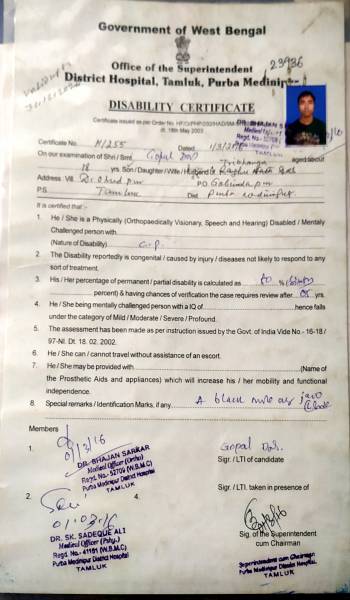 Government of West Bengal
23936
Office of the Superintendent
District Hospital, Tamluk, Purba Medinipur
DISABILITY CERTIFICATE
Certificate issued as per Order No.
dt. 18th May 2003
TAMLUK
Certificate No. M/255 Dated 1/3/2016
On our examination of Shri / Smt. Gopal Das aged about
18 yrs. Son / Daughter / Wife / Husband of
Address : Vill. P.O. Gobindapur
P.S. Tamluk Dist. Purba Medinipur
It is certified that :-
1. He / She is a Physically (Orthopaedically Visionary, Speech and Hearing) Disabled / Mentaly
Challenged person with
(Nature of Disability) C.P.
2. The Disability reportedly is congenital / caused by injury / diseases not likely to respond to any
sort of treatment.
3. His / Her percentage of permanent / partial disability is calculated as %
percent) & having chances of verification the case requires review after 05 yrs.
4. He / She being mentally challenged person with a IQ of hence falls
under the category of Mild / Moderate / Severe / Profound.
5. The assessment has been made as per instruction issued by the Govt. of India Vide No.- 16-18 /
97-NI. Dt. 18. 02. 2002.
6. He / She can / cannot travel without assistance of an escort.
7. He / She may be provided with (Name of
the Prosthetic Aids and appliances) which will increase his / her mobility and functional
independence.
8. Special remarks / Identification Marks, if any. A black mole
Members
1.
01/3/16
DR. BHAJAN SARKAR
Medical Officer (Ortho)
Regd. No.- 52709 (W.B.M.C)
Purba Medinipur District Hospital
TAMLUK
Gopal Das.
Sigr. / LTI of candidate
Sigr. / LTI. taken in presence of
2.
4.
01.03.16
DR. SK. SADEQUE ALI
Medical Officer (Psty.)
Regd. No.- 41161 (W.B.M.C)
Purba Medinipur District Hospital
TAMLUK
Sig. of the Superintendent
cum Chairman
Superintendent cum Chairman
Purba Medinipur District Hospital
TAMLUK